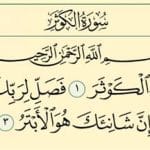 سُورَةُ الْكَوْثَرِ
سْمِ اللَّهِ الرَّحْمَٰنِ الرَّحِيمِ
الْكَوْثَرَ ١ فَصَلِّ لِرَبِّكَ
إِنَّ شَانِئَكَ هُوَ الْأَبْتَرُ ٣